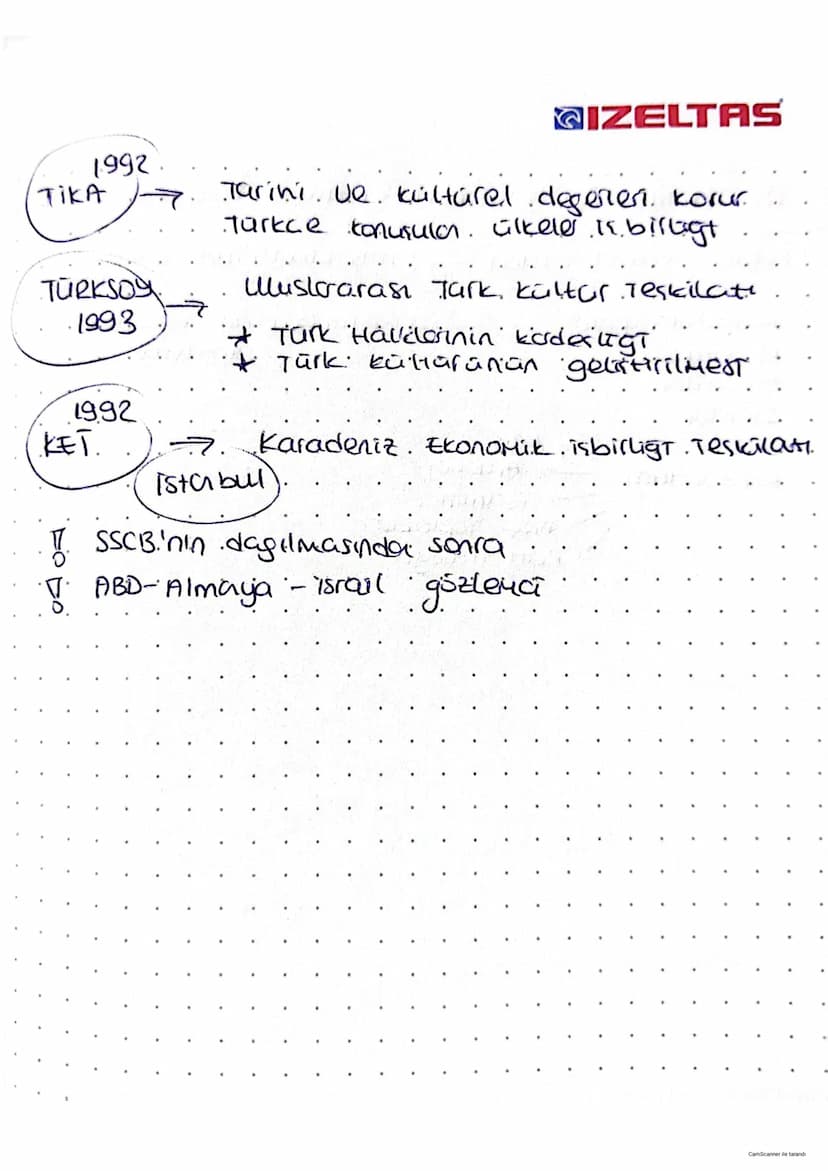 IZELTAS
1992
TİKA → Tarihi ve kültürel değerleri korur
Türkçe konuşulan ülkeler işbirliği
TÜRKSOY → Uluslararası Türk Kültür Teşkilatı
1993
* Türk Halklarının kardeşliği
* Türk kültürünün geliştirilmesi
1992
KEİ → Karadeniz Ekonomik işbirliği Teşkilatı
İstanbul
! SSCB'nin dağılmasından sonra
! ABD-Almaya-israil gözlemci
CamScanner ile tarandı